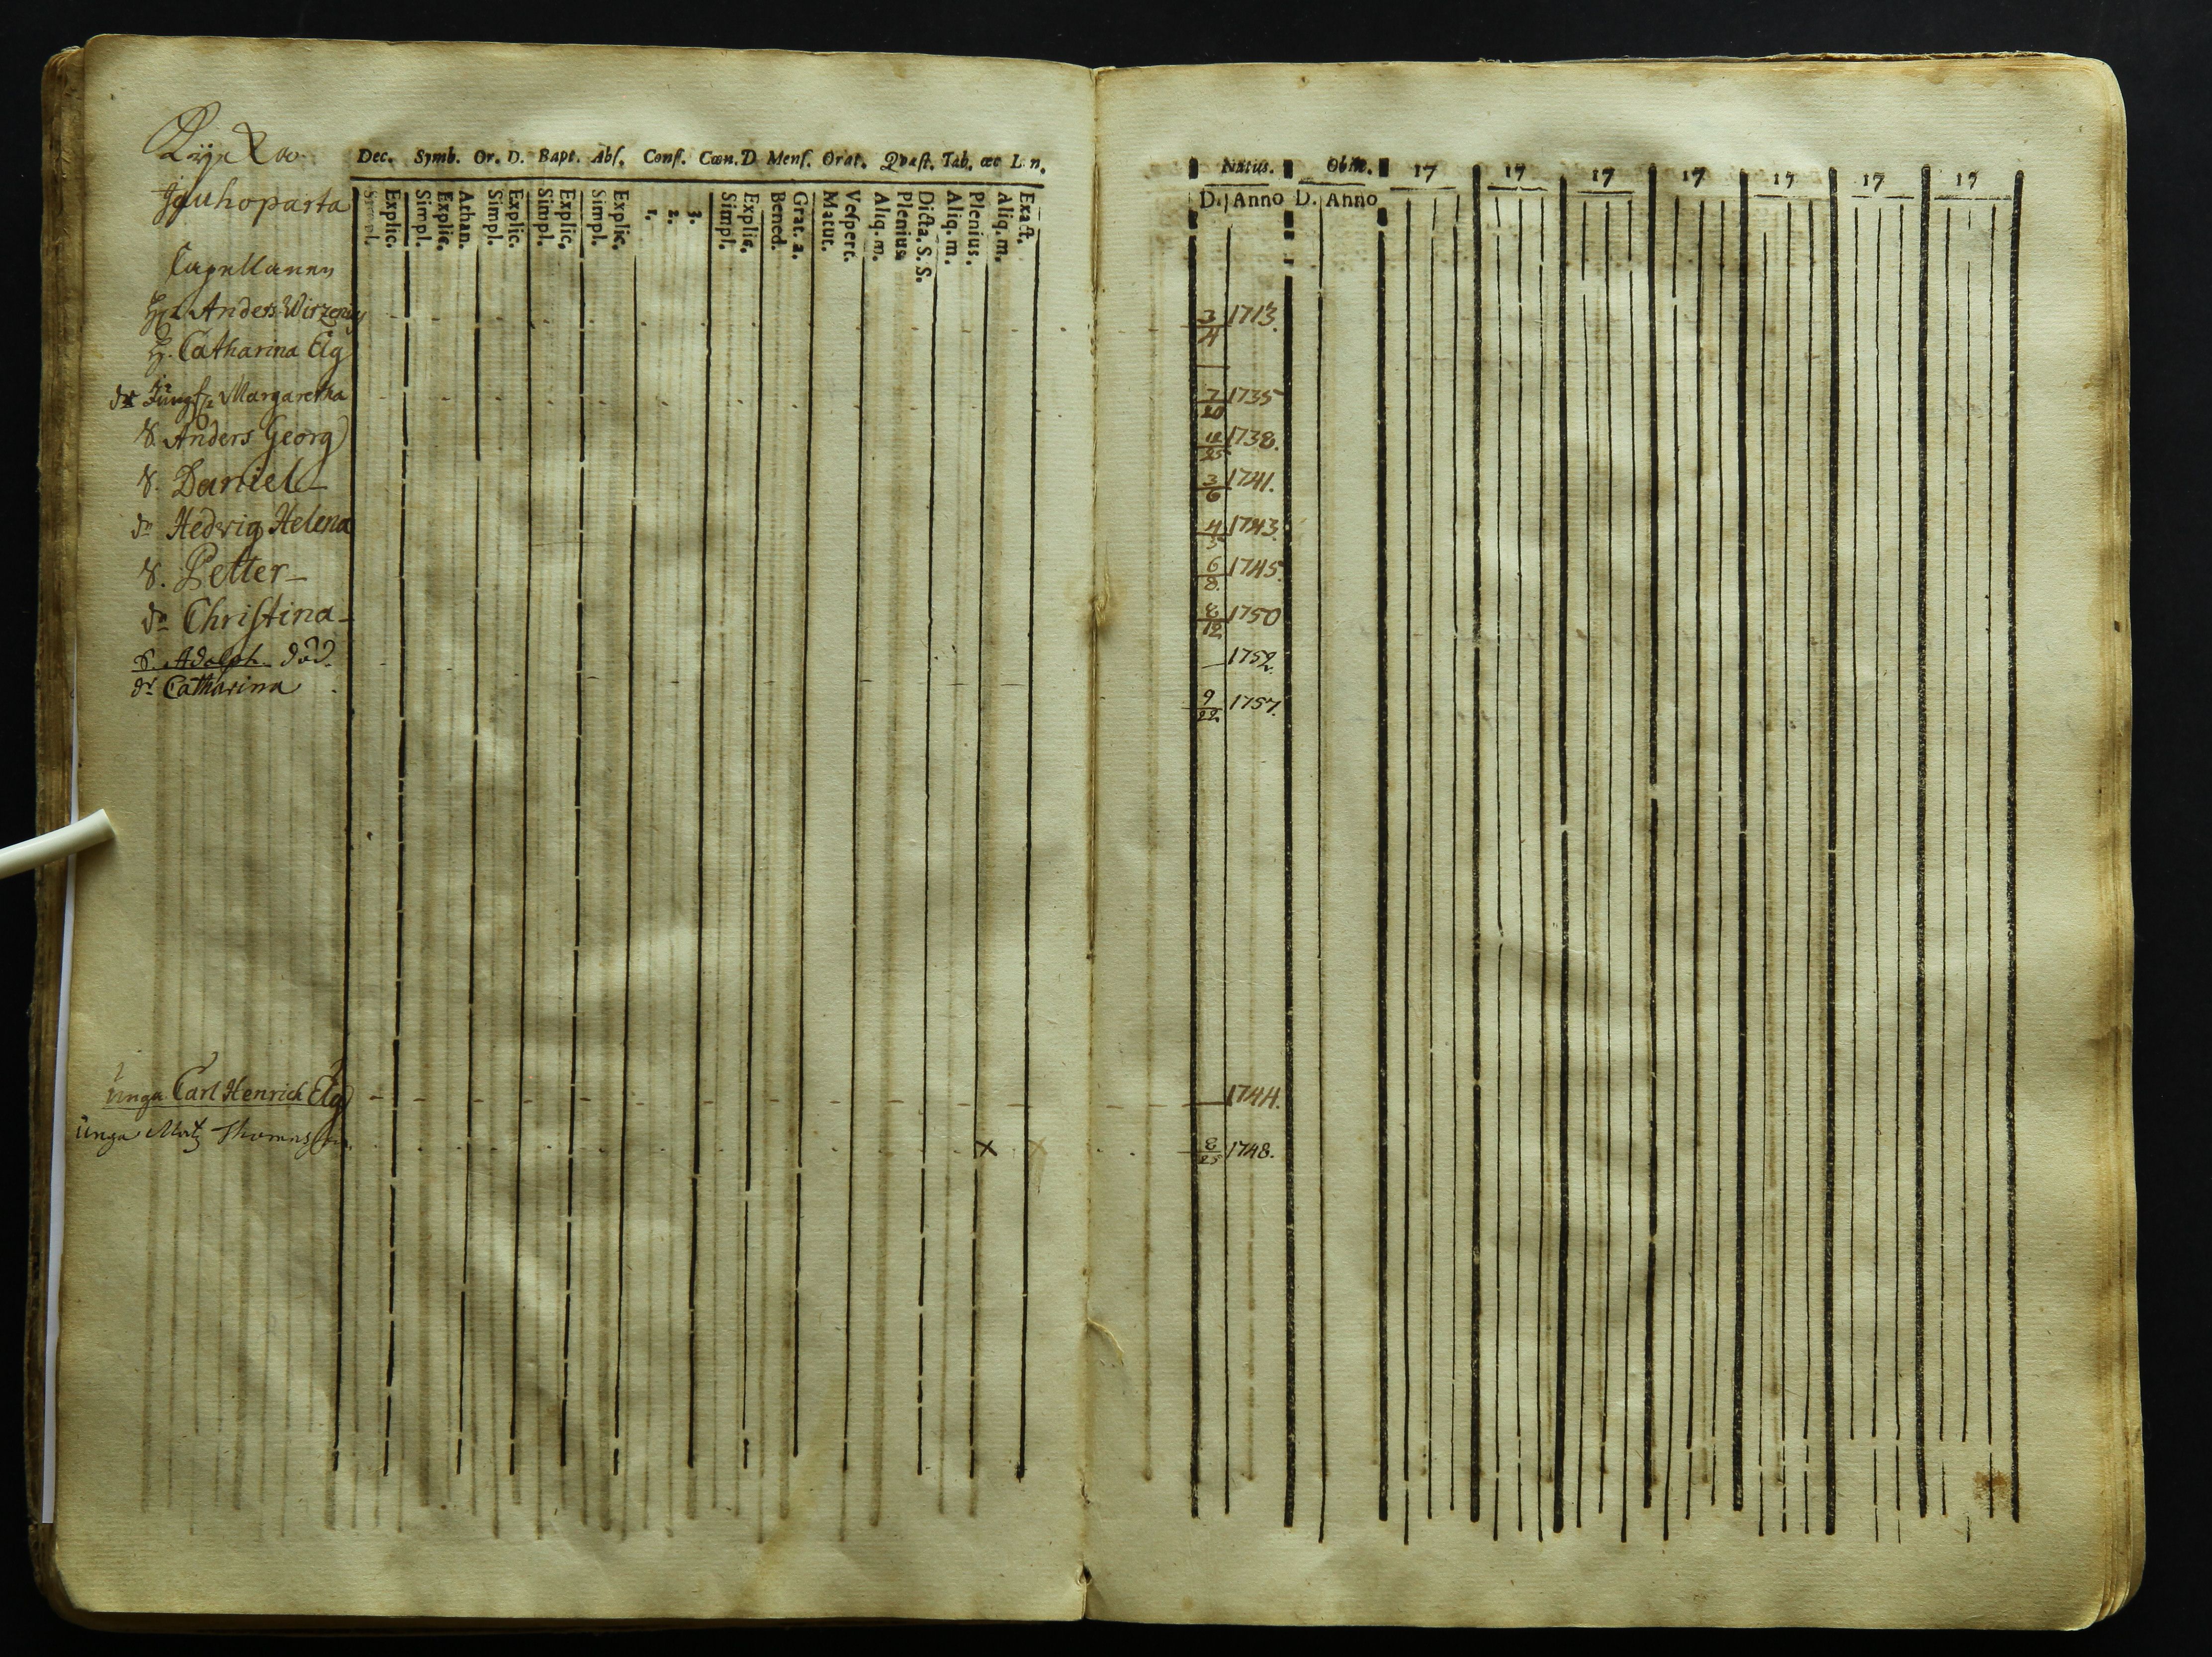 Jauhoparta
Capellanen
Hr Anders Wirzenius
H. Catharina Elg
dr Jungfr Margaretha
S. Anders Georg
S. Daniel
dr Hedvig Helena
S. Petter
dr Christina
S. Adolph död.
dr Catharina
unga Carl Henrich Elg
unga Matz Thomasson
Dec. Symb. Or. D. Bapt. Abſ. Conf. Cœn. D Menſ. Orat. Qvæſt. Tab. œc L n.
Simpl. Explic. Simpl. Explic. Athan. Simpl. Explic. Simpl. Explic. Simpl. Explic. 1. 2. 3. Simpl. Explic. Bened. Grat. a. Matut. Veſpert. Aliq. m. Plenius Dicta. S. S. Aliq. m. Plenius. Aliq. m. Exact.
x x
Natus. Obiit. 17 17 17 17 17 17 17
D. Anno D. Anno
3/4 1713.
7/20 1735
12/25 1738.
3/6 1741.
4/5 1743.
6/8 1745.
8/12 1750
1752.
9/22 1757.
1744.
8/25 1748.